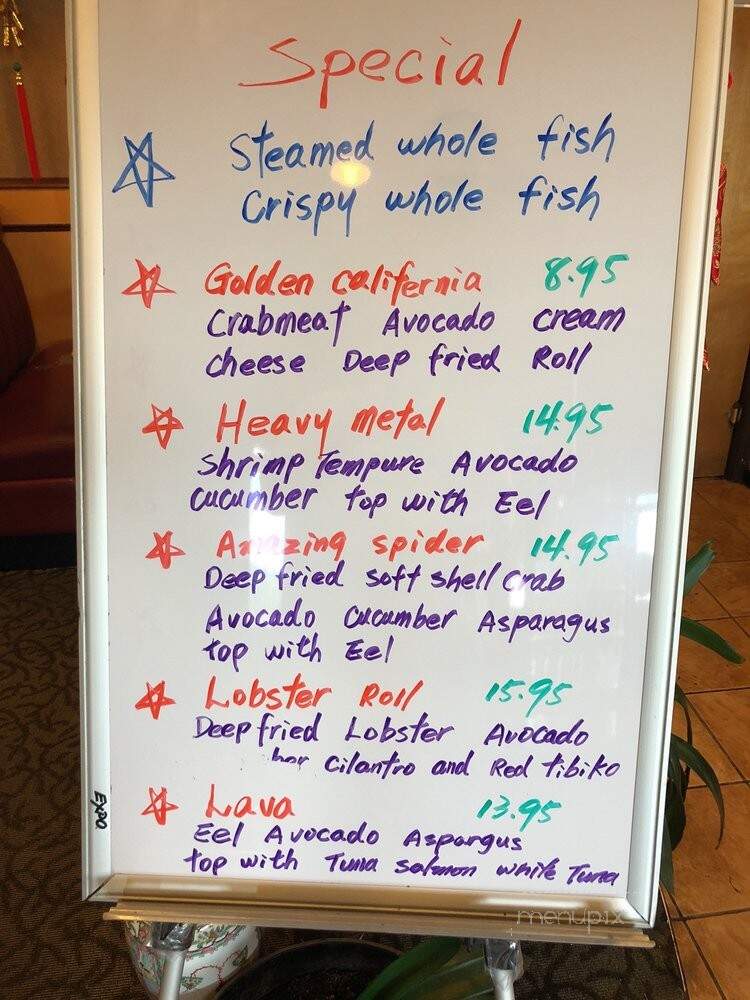 Special
Steamed whole fish
Crispy whole fish
Golden califernia 8.95
Crabmeat Avocado cream
cheese Deep fried Roll
Heavy metal 14.95
Shrimp Tempure Avocado
cucumber top with Eel
Amazing spider 14.95
Deep fried soft shell crab
Avocado cucumber Asparagus
top with Eel
Lobster Roll 15.95
Deep fried Lobster Avocado
cilantro and Red tibiko
Lava 13.95
Eel Avocado Aspargus
top with Tuna salmon white Tuna
EXPO
menupix